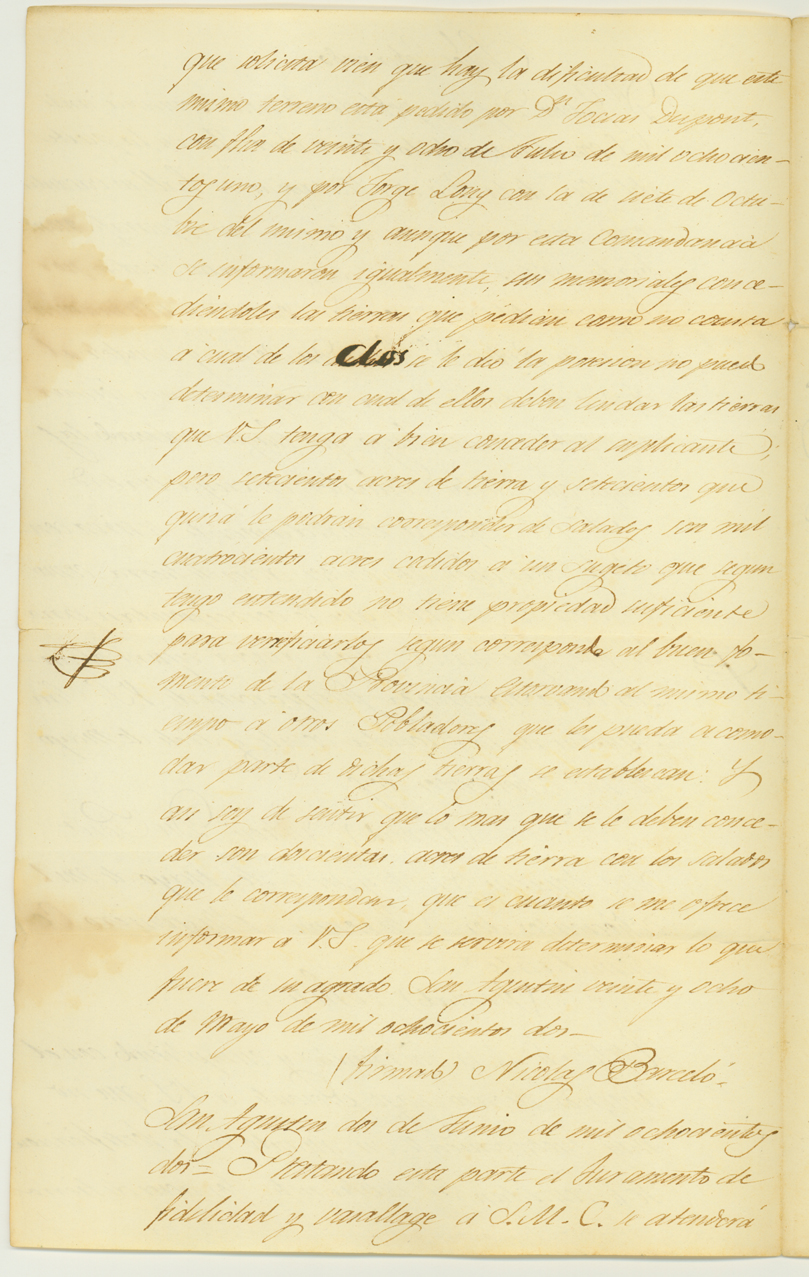 que solicita bien que hay la dificultad de que este
mismo terreno está pedido por Dn Josias Dupont,
con fha de veinte y ocho de Julio de mil ochocien-
tos uno, y por Jorge Long con la de siete de Octu-
bre del mismo y aunque por esta Comandancia
se informaron igualmente, sus memoriales conce-
diendoles las tierras que pedian como no consta
a cual de los dos se le dio la posesion no puedo
determinar con cual de ellos deben lindar las tierras
que V.S. tenga á bien conceder al suplicante,
pero setecientos acres de tierra y setecientos que
quisá le podrán corresponder de Salados son mil
cuatrocientos acres cedidos a un Sugeto que segun
tengo entendido no tiene propiedad suficiente
para beneficiarlos segun corresponde al buen fo-
mento de la Provincia estorvando al mismo ti-
empo á otros Pobladores que les pueda acomo-
dar parte de dichas tierras se establescan: Y
asi soy de sentir que lo mas que se le deben conce-
der son doscientas acres de tierra con los salados
que le correspondan, que es cuanto se me ofrece
informar á V.S. que se servira determinar lo que
fuere de su agrado San Agustin veinte y ocho
de Mayo de mil ochocientos dos—
(firmado Nicolas Barceló.
San Agustin dos de Junio de mil ochocientos
dos= Prestando esta parte el Juramento de
fidelidad y vasallage á S.M.C. se atenderá